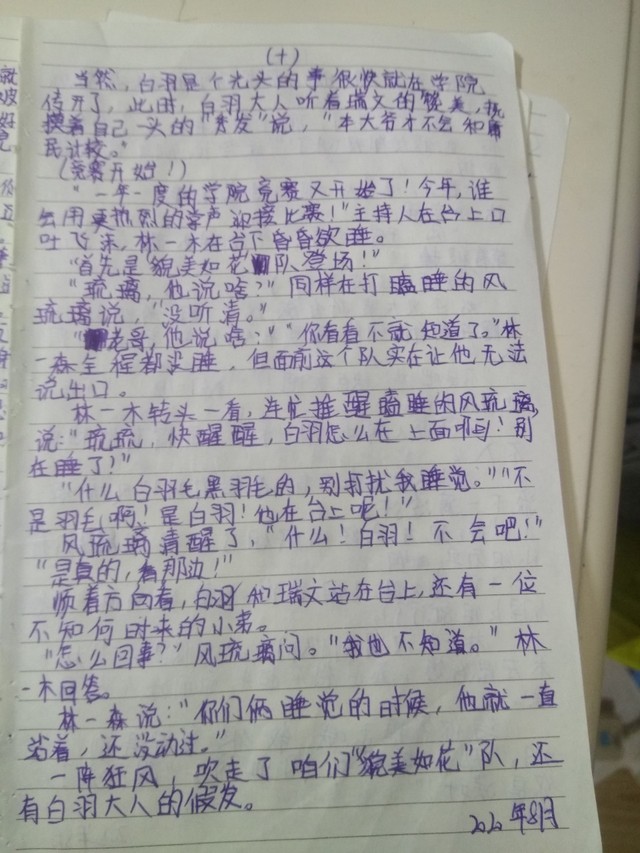 (十)
当然,白羽是个光头的事很快就在学院
传开了,此时,白羽大人听着瑞文的貌美,抚
摸着自己一头的"秀发"说,"本大爷才不会和庸
民计较。"
(竞赛开始!)
"一年一度的学院竞赛又开始了!今年,谁
会用更热烈的掌声迎接比赛!"主持人在台上口
吐飞沫,林一木在台下昏昏欲睡。
"首先是'貌美如花'队登场!"
"琉璃,他说啥?"同样在打瞌睡的风
琉璃说,"没听清。"
"老哥,他说啥?""你看看不就知道了。"林
一森全程都没睡,但面前这个队实在让他无法
说出口。
林一木转头一看,连忙推醒瞌睡的风琉璃,
说:"琉琉,快醒醒,白羽怎么在上面啊!别
在睡了?"
"什么白羽毛黑羽毛的,别打扰我睡觉。""不
是羽毛啊!是白羽!他在台上呢!"
风琉璃清醒了,"什么!白羽!不会吧!"
"是真的,看那边!"
顺着方向看,白羽和瑞文站在台上,还有一位
不知何时来的小弟。
"怎么回事?"风琉璃问。"我也不知道。"林
一木回答。
林一森说:"你们俩睡觉的时候,他就一直
站着,还没动过。"
一阵狂风,吹走了咱们"貌美如花"队,还
有白羽大人的假发。
2020年8月